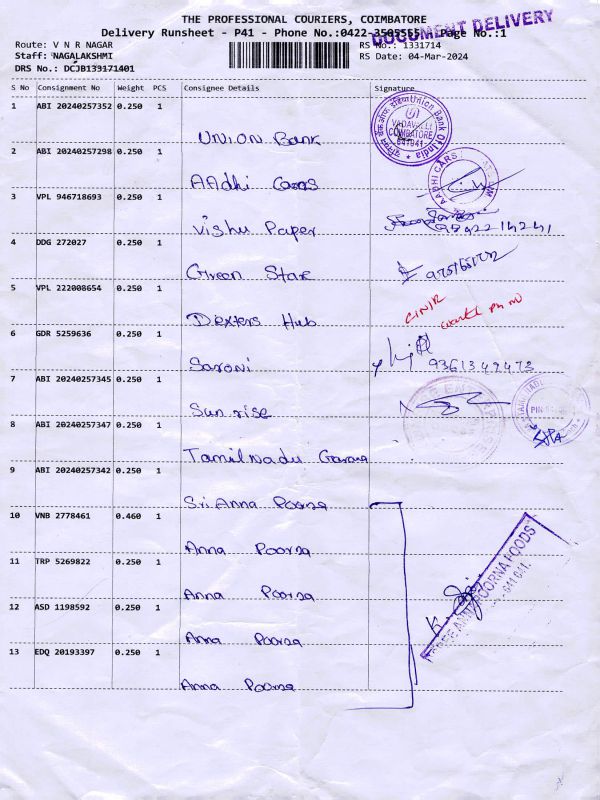 THE PROFESSIONAL COURIERS, COIMBATORE
DOCUMENT DELIVERY
Delivery Runsheet - P41 - Phone No.:0422-3505555 Page No.:1
Route: V N R NAGAR
RS No.: 1331714
Staff: NAGALAKSHMI
RS Date: 04-Mar-2024
DRS No.: DCJB133171401
S No Consignment No Weight PCS Consignee Details Signature
1 ABI 20240257352 0.250 1
Union Bank
Union Bank Of India
VADAVALLI
COIMBATORE
641041
2 ABI 20240257298 0.250 1
AAdhi Cars
AADHI CARS
3 VPL 946718693 0.250 1
Vishu Paper
9842214241
4 DDG 272027 0.250 1
Green Star
5 VPL 222008654 0.250 1
Dexters Hub
6 GDR 5259636 0.250 1
Saroni
9361349473
7 ABI 20240257345 0.250 1
Sun rise
8 ABI 20240257347 0.250 1
Tamilnadu Grama
9 ABI 20240257342 0.250 1
Sri Anna Poorna
10 VNB 2778461 0.460 1
Anna Poorna
11 TRP 5269822 0.250 1
Anna Poorna
12 ASD 1198592 0.250 1
Anna Poorna
SREE ANNAPOORNA FOODS
641 041.
13 EDQ 20193397 0.250 1
Anna Poorna